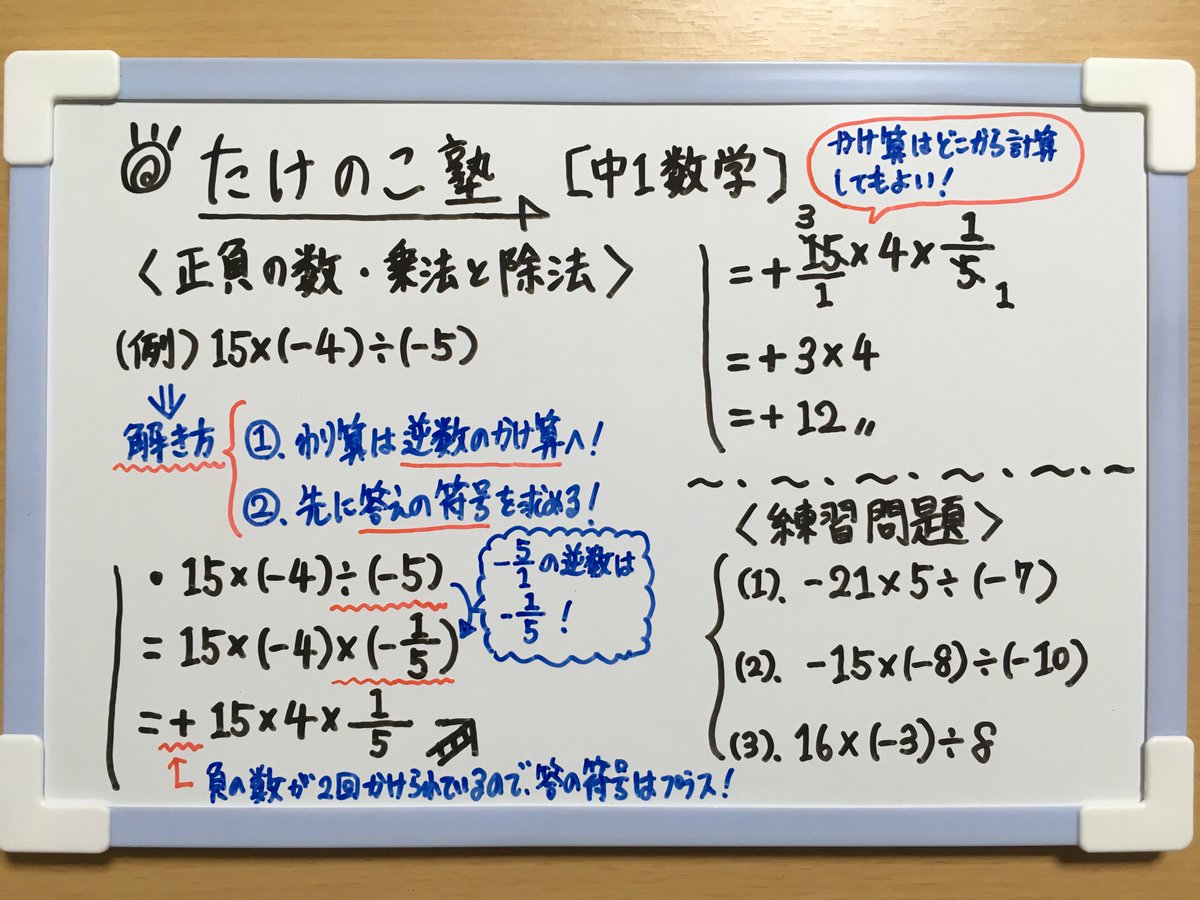 たけのこ塾 [中1数学]
〈正負の数・乗法と除法〉
(例) 15×(-4)÷(-5)
解き方
①. わり算は逆数のかけ算へ!
②. 先に答えの符号を求める!
・15×(-4)÷(-5)
=15×(-4)×(-1/5)
=+15×4×1/5
-5/1の逆数は
-1/5!
負の数が2回かけられているので、答の符号はプラス!
かけ算はどこから計算
してもよい!
3
=+15×4×1/5
1 1
=+3×4
=+12〃
〜・〜・〜・〜・〜・〜
〈練習問題〉
(1). -21×5÷(-7)
(2). -15×(-8)÷(-10)
(3). 16×(-3)÷8